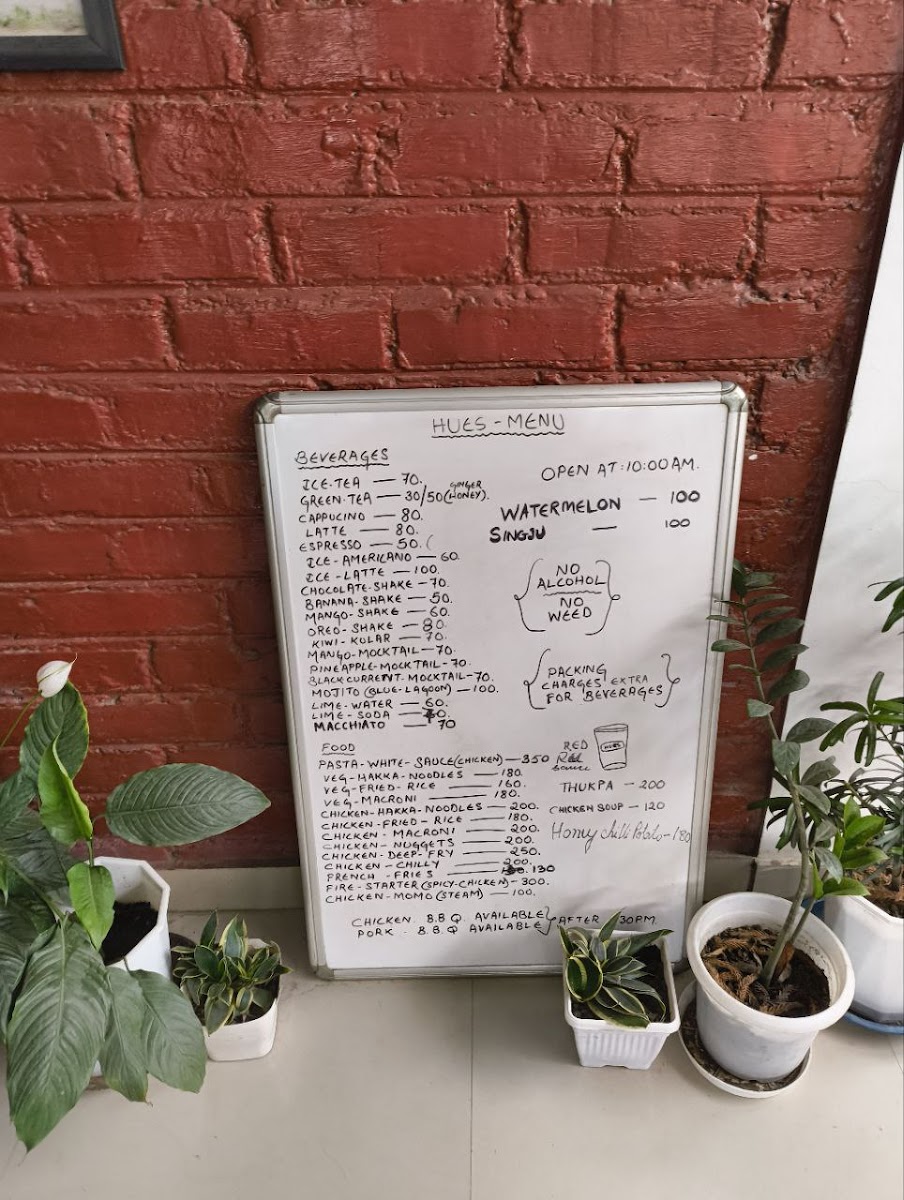 HUES - MENU
BEVERAGES
ICE-TEA — 70.
GREEN-TEA — 30/50 (GINGER HONEY).
CAPPUCINO — 80.
LATTE — 80.
ESPRESSO — 50.
ICE-AMERICANO — 60.
ICE-LATTE — 100.
CHOCOLATE-SHAKE — 70.
BANANA-SHAKE — 50.
MANGO-SHAKE — 60.
OREO-SHAKE — 80.
KIWI-KULAR — 70.
MANGO-MOCKTAIL — 70.
PINEAPPLE-MOCKTAIL - 70.
BLACKCURRENT. MOCKTAIL - 70.
MOJITO (BLUE-LAGOON) — 100.
LIME-WATER — 60.
LIME-SODA —
MACCHIATO — 70
FOOD
PASTA-WHITE-SAUCE (CHICKEN) — 350
VEG-HAKKA-NOODLES — 180.
VEG-FRIED-RICE — 160.
VEG-MACRONI — 180.
CHICKEN-HAKKA-NOODLES — 200.
CHICKEN-FRIED-RICE — 180.
CHICKEN-MACRONI — 200.
CHICKEN-NUGGETS — 200.
CHICKEN-DEEP-FRY — 250.
CHICKEN-CHILLY — 200.
FRENCH-FRIES — 130
FIRE-STARTER (SPICY-CHICKEN) - 300.
CHICKEN-MOMO (STEAM) — 100.
CHICKEN. B.B.Q. AVAILABLE
PORK. B.B.Q AVAILABLE
AFTER 30PM
OPEN AT: 10:00 AM.
WATERMELON — 100
SINGJU — 100
NO
ALCOHOL
NO
WEED
PACKING
CHARGES EXTRA
FOR BEVERAGES
RED
Red
sauce
HUES
THUKPA — 200
CHICKEN SOUP — 120
Honey chilli Potato - 180